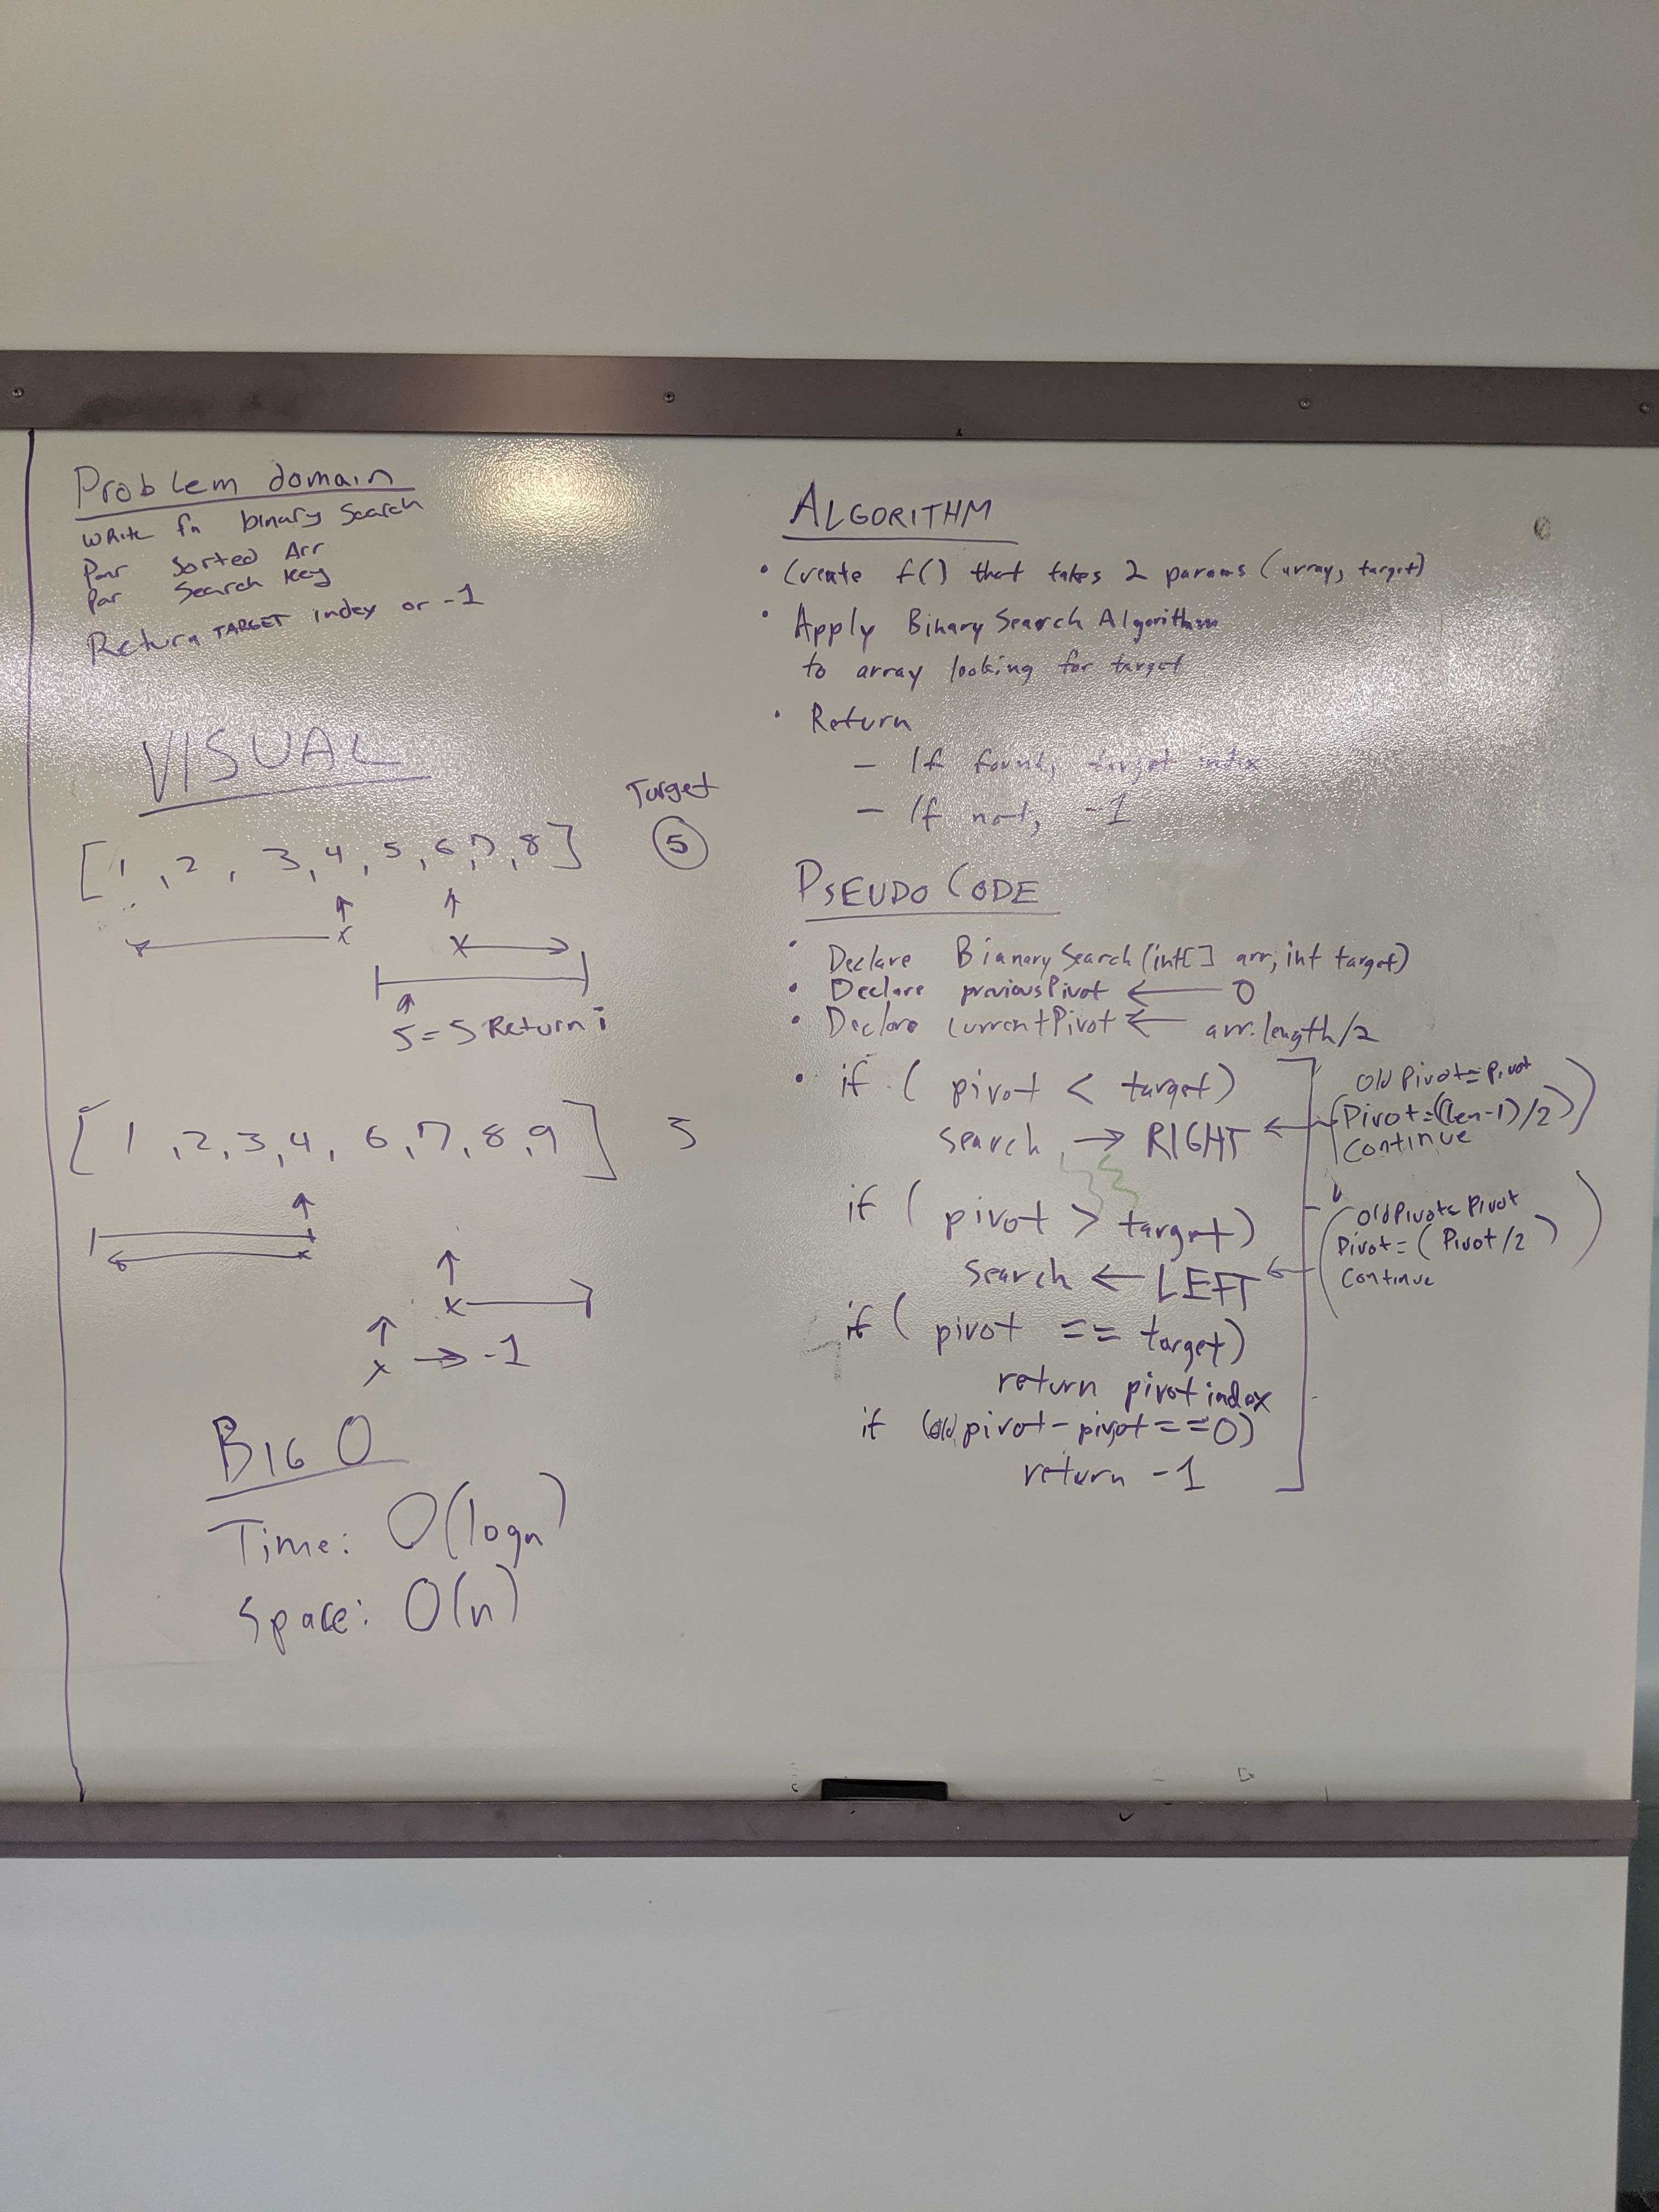 Problem domain
Write fn binary Search
Par Sorted Arr
Par Search Key
Return TARGET index or -1
VISUAL
Target
[1, 2, 3, 4, 5, 6, 7, 8] 5
5 = 5 Return i
[1, 2, 3, 4, 6, 7, 8, 9] 5
→ -1
BIG O
Time: O(logn)
Space: O(n)
ALGORITHM
• Create f() that takes 2 params (array, target)
• Apply Binary Search Algorithm
to array looking for target
• Return
– If found, target index
– If not, -1
PSEUDO CODE
• Declare BianarySearch(int[] arr, int target)
• Declare previousPivot ← 0
• Declare currentPivot ← arr.length/2
• if ( pivot < target)
search → RIGHT
Old Pivot = pivot
Pivot = ((len-1)/2)
Continue
if ( pivot > target)
search ← LEFT
Old Pivot = Pivot
Pivot = ( Pivot/2 )
Continue
if ( pivot == target)
return pivot index
if (old pivot - pivot == 0)
return -1